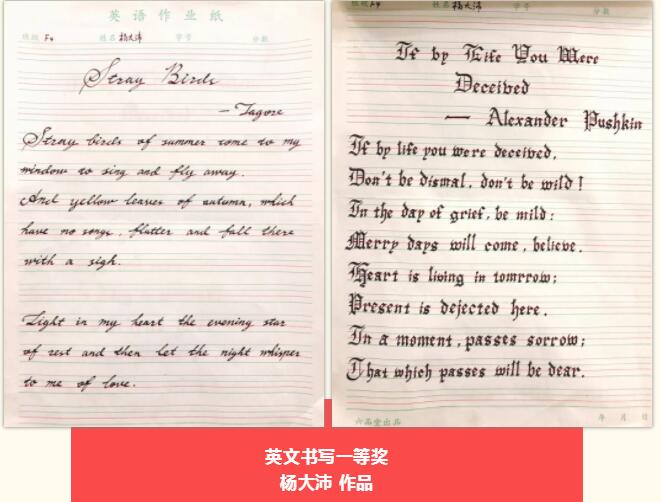 英语作业纸
班级 F4 姓名 杨大沛 学号 分数
Stray Birds
— Tagore
Stray birds of summer come to my
window to sing and fly away.
And yellow leaves of autumn, which
have no songs, flutter and fall there
with a sigh.
Light in my heart the evening star
of rest and then let the night whisper
to me of love.
F4 姓名 杨大沛 学号 分数
If by Life You Were
Deceived
— Alexander Pushkin
If by life you were deceived,
Don't be dismal, don't be wild!
In the day of grief, be mild:
Merry days will come, believe.
Heart is living in tomrrow;
Present is dejected here.
In a moment, passes sorrow;
That which passes will be dear.
六品堂出品 年 月 日
英文书写一等奖
杨大沛 作品